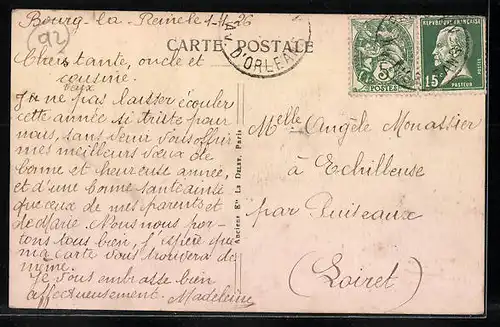 Bourg-la-Reine le 1-1-26
92
CARTE POSTALE
AV. D'ORLEANS
RÉPUBLIQUE FRANÇAISE
5
POSTES
15
POSTES
PASTEUR
Chers tante, oncle et
cousine.
Je ne veux pas laisser écouler
cette année si triste pour
nous, sans venir vous offrir
mes meilleurs vœux de
bonne et heureuse année,
et d'une bonne santé ainsi
que ceux de mes parents et
de Marie. Nous nous por-
tons tous bien, j'espère que
ma carte vous trouvera de
même.
Je vous embrasse bien
affectueusement. Madeleine
Anciens Ets La Deley, Paris
Melle Angèle Monassier
à Echilleuse
par Puiseaux
(Loiret)